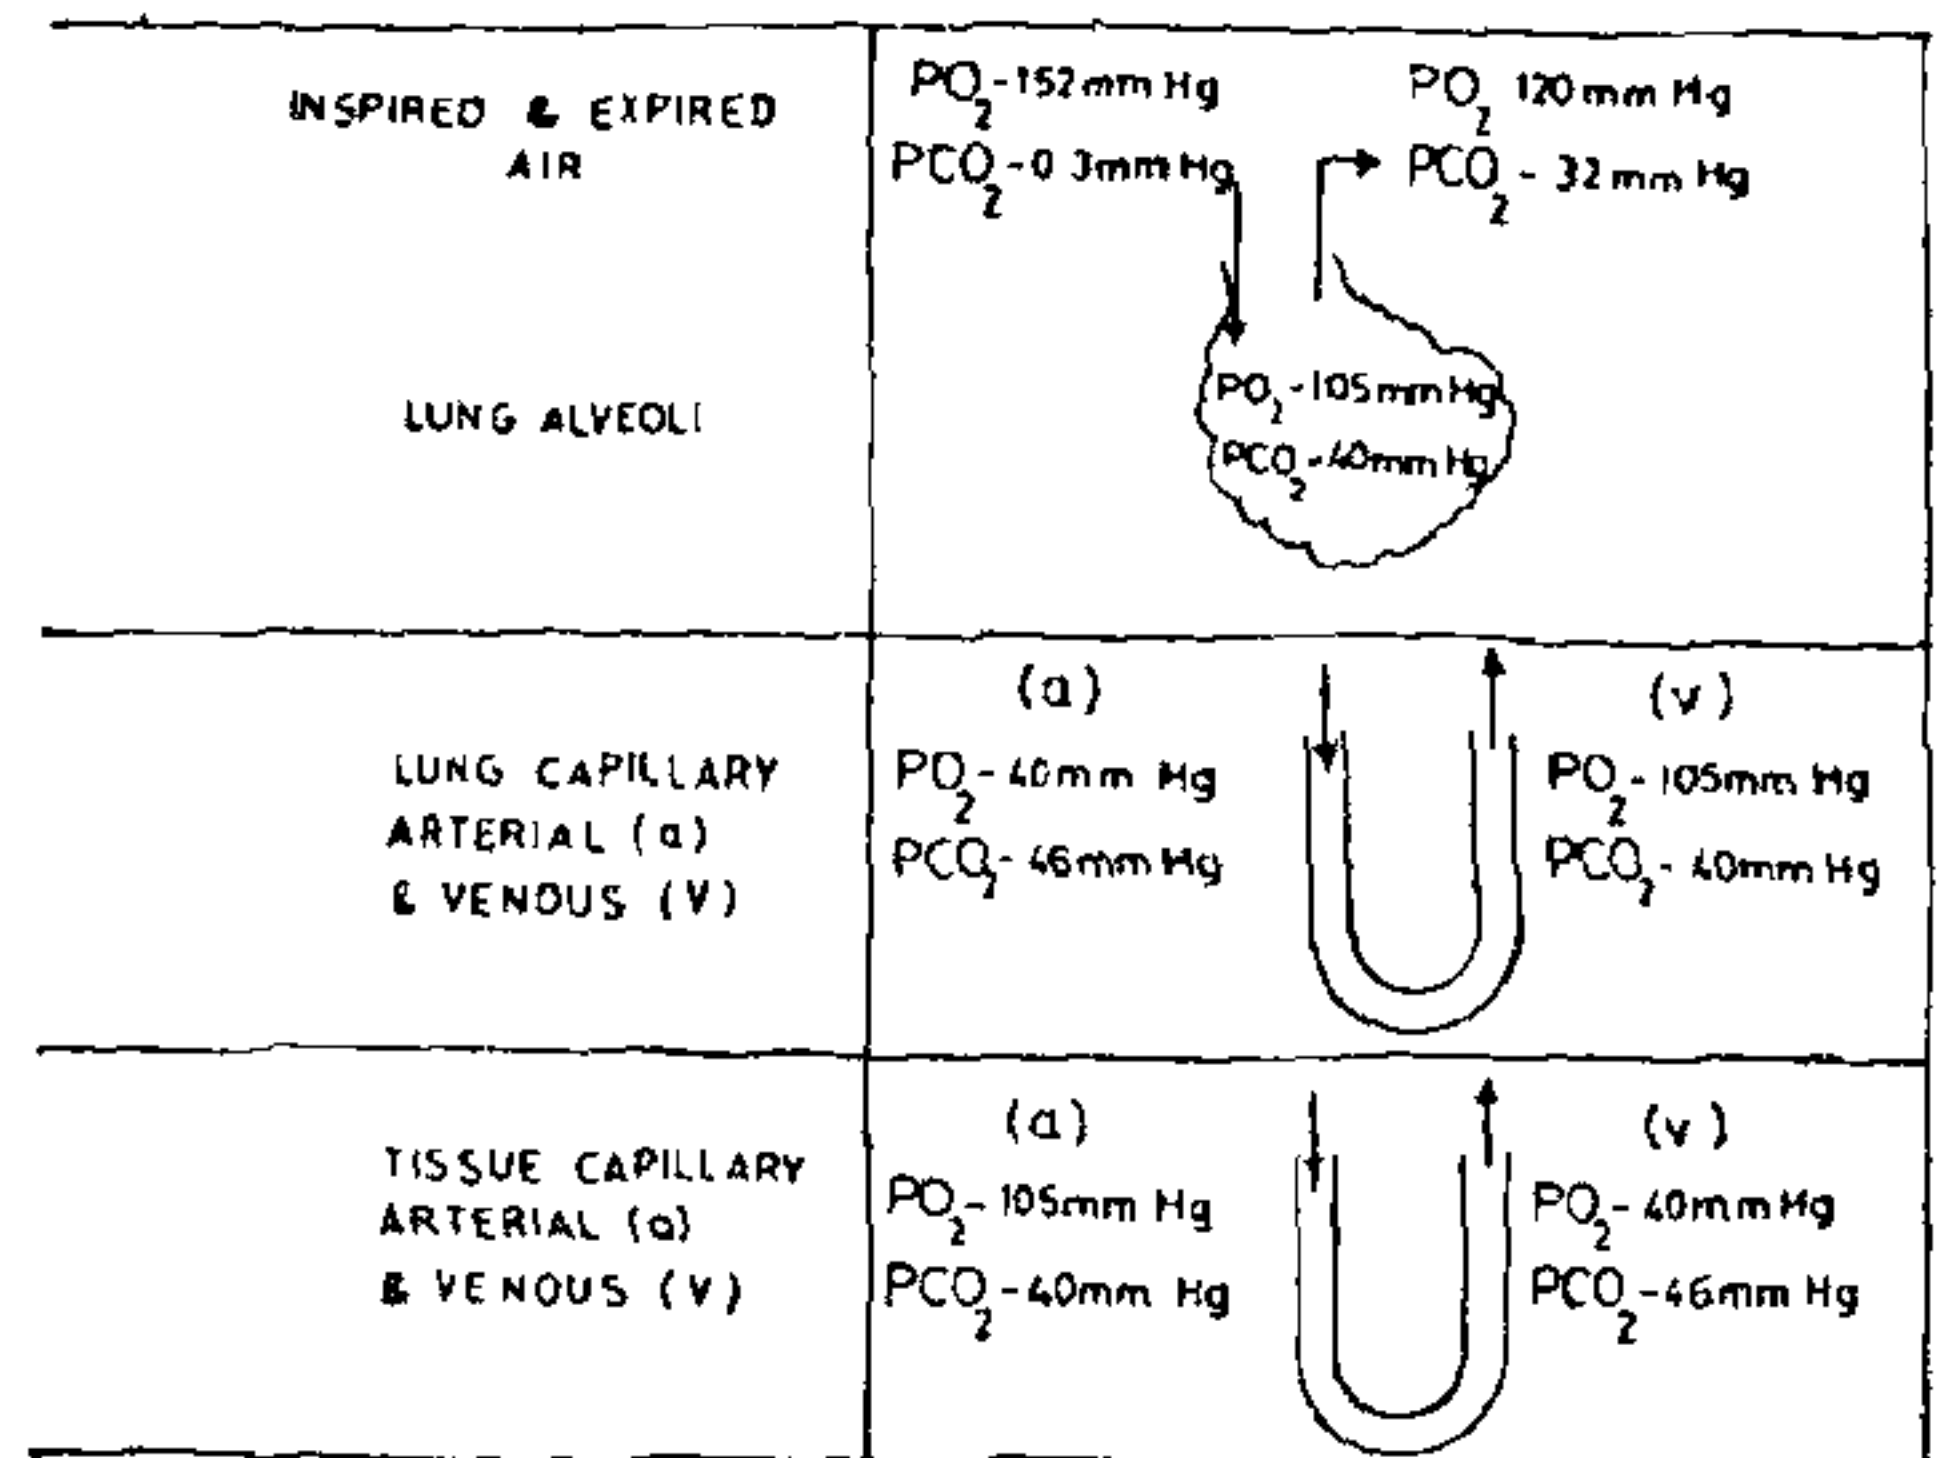 INSPIRED & EXPIRED
AIR
PO2-152mm Hg
PCO2-0 3mm Hg
PO2 120mm Hg
PCO2-32mm Hg
LUNG ALVEOLI
PO2-105mm Hg
PCO2-40mm Hg
LUNG CAPILLARY
ARTERIAL (a)
& VENOUS (V)
(a)
PO2-40mm Hg
PCO2-46mm Hg
(v)
PO2-105mm Hg
PCO2-40mm Hg
TISSUE CAPILLARY
ARTERIAL (a)
& VENOUS (V)
(a)
PO2-105mm Hg
PCO2-40mm Hg
(v)
PO2-40mm Hg
PCO2-46mm Hg